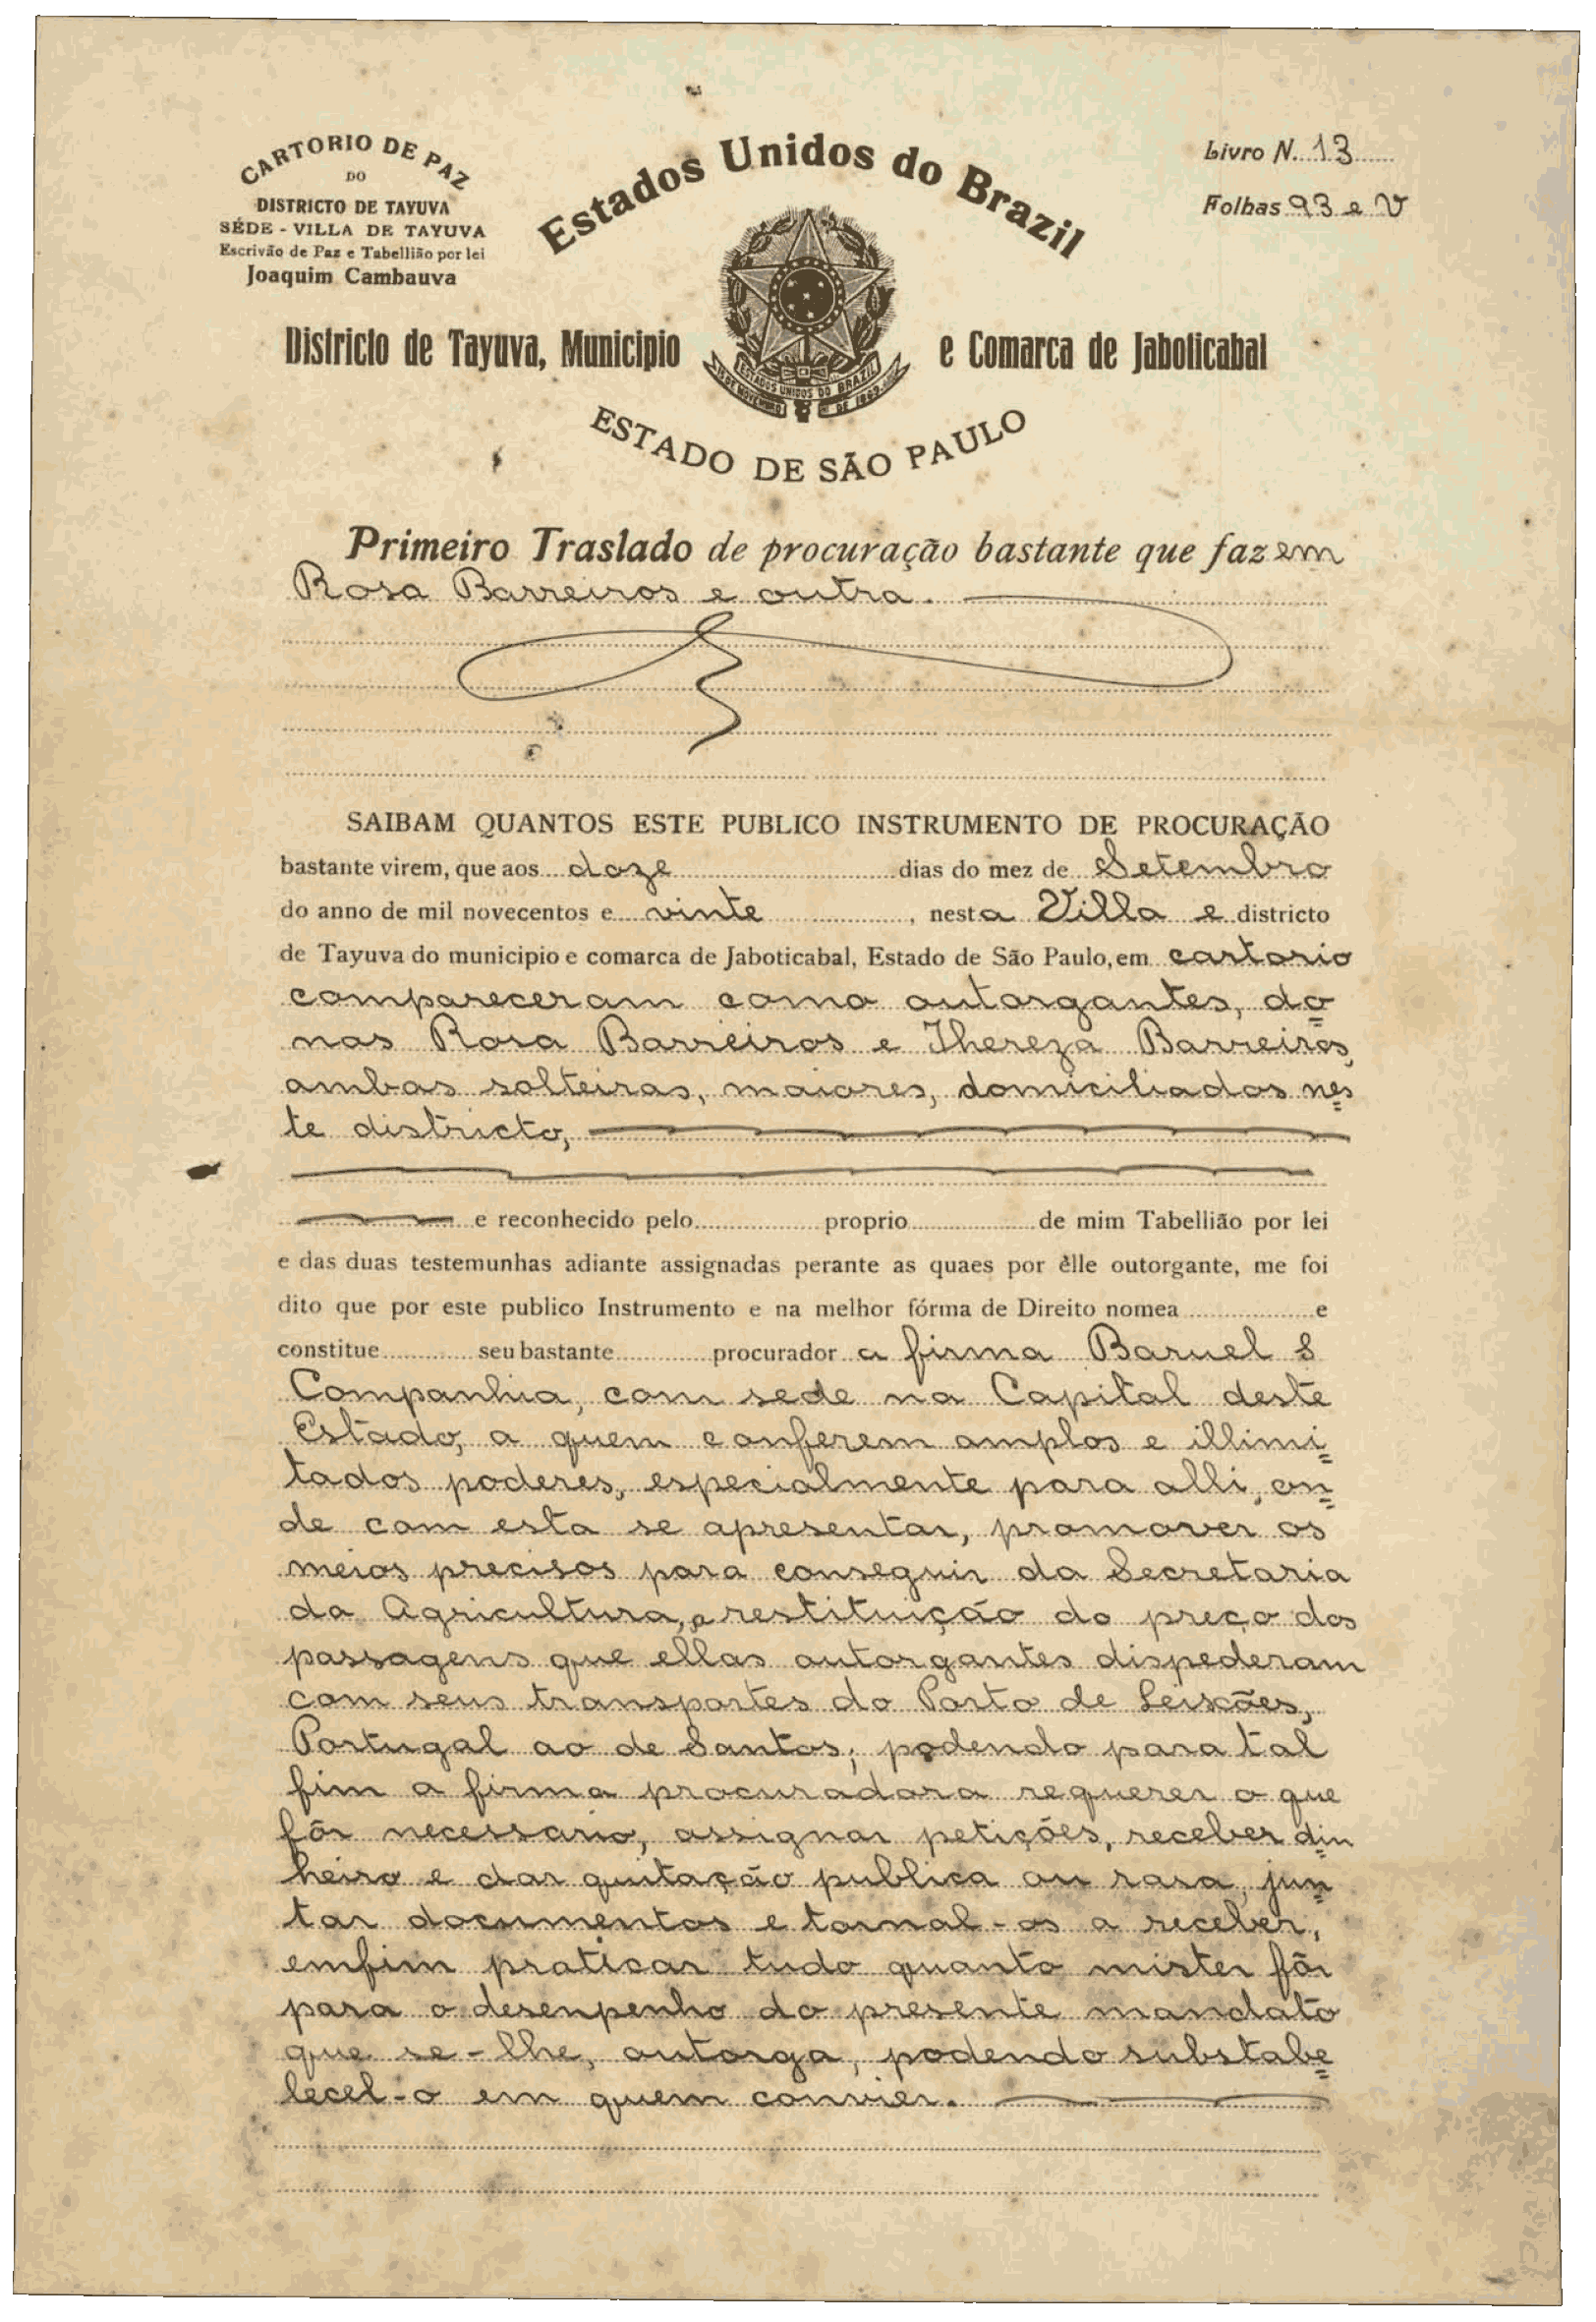 CARTORIO DE PAZ
DO
DISTRICTO DE TAYUVA
SÉDE - VILLA DE TAYUVA
Escrivão de Paz e Tabellião por lei
Joaquim Cambauva
Estados Unidos do Brazil
Livro N. 13
Folhas 93 e V
Districto de Tayuva, Municipio e Comarca de Jaboticabal
ESTADOS UNIDOS DO BRAZIL
15 DE NOVEMBRO DE 1889
ESTADO DE SÃO PAULO
Primeiro Traslado de procuração bastante que fazem
Rosa Barreiros e outra.
SAIBAM QUANTOS ESTE PUBLICO INSTRUMENTO DE PROCURAÇÃO
bastante virem, que aos doze dias do mez de Setembro
do anno de mil novecentos e vinte, nesta Villa e districto
de Tayuva do municipio e comarca de Jaboticabal, Estado de São Paulo, em cartorio
compareceram como outorgantes, do=
nas Rosa Barreiros e Thereza Barreiros,
ambas solteiras, maiores, domiciliadas nes=
te districto,
e reconhecido pelo proprio de mim Tabellião por lei
e das duas testemunhas adiante assignadas perante as quaes por êlle outorgante, me foi
dito que por este publico Instrumento e na melhor fórma de Direito nomea e
constitue seu bastante procurador a firma Baruel &
Companhia, com sede na Capital deste
Estado, a quem conferem amplos e illimi=
tados poderes, especialmente para alli, on=
de com esta se apresentar, promover os
meios precisos para conseguir da Secretaria
da Agricultura, a restituição do preço das
passagens que ellas outorgantes dispederam
com seus transportes do Porto de Leixões,
Portugal ao de Santos; podendo para tal
fim a firma procuradora requerer o que
fôr necessario, assignar petições, receber din=
heiro e dar quitação publica ou rasa, jun=
tar documentos e tornal-os a receber,
emfim praticar tudo quanto mister fôr
para o desenpenho do presente mandato
que se-lhe, outorga, podendo substabe=
lecel-o em quem convier.